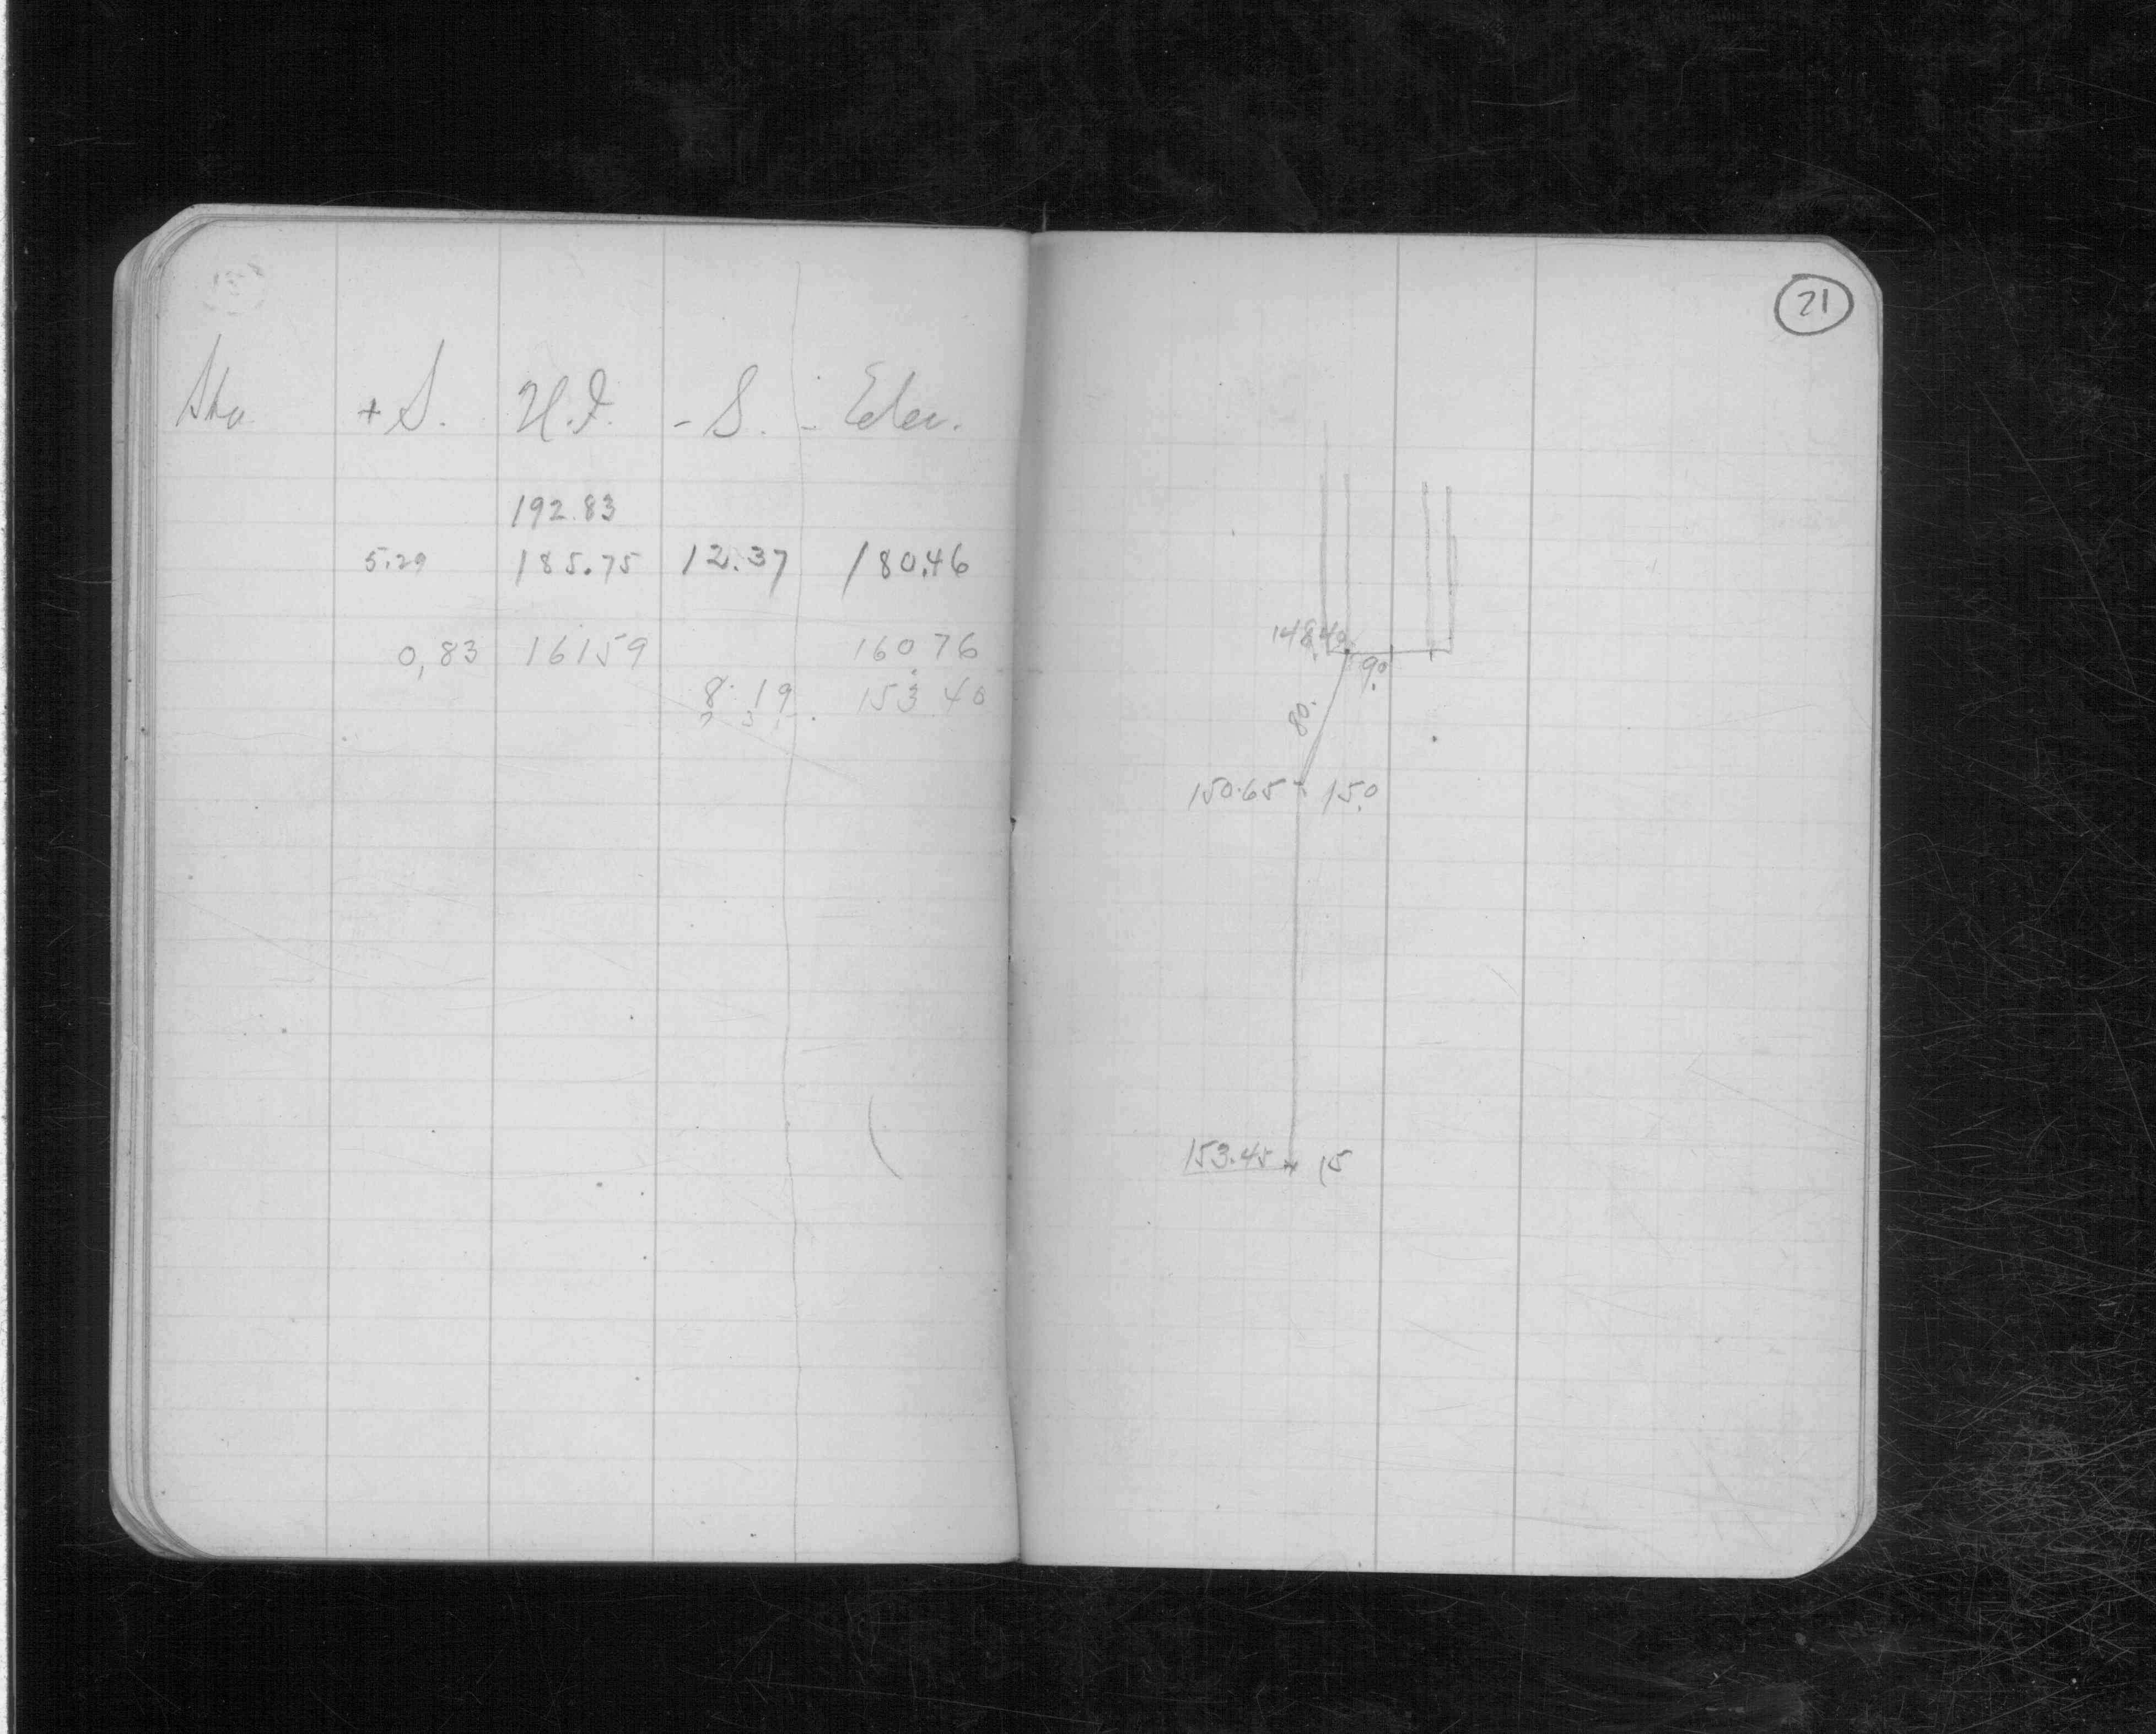 Sta. +S. H.I. -S. Elev.
192.83
5.29 185.75 12.37 180.46
0,83 16159 16076
8.19 153 40
21
148.40
9.0
80.
150.65 15.0
153.45 15